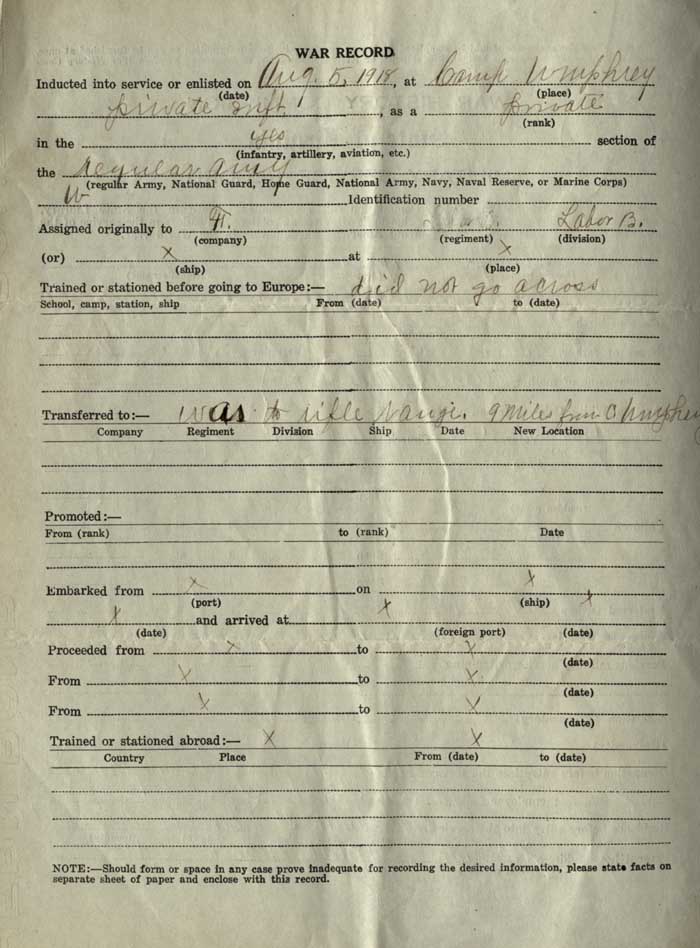 WAR RECORD
Inducted into service or enlisted on Aug. 5, 1918, at Camp Umphrey
(date) (place)
private , as a private
(rank)
in the yes section of
(infantry, artillery, aviation, etc.)
the Regular Army
(regular Army, National Guard, Home Guard, National Army, Navy, Naval Reserve, or Marine Corps)
Identification number
Assigned originally to Labor B.
(company) (regiment) (division)
(or) x at x
(ship) (place)
Trained or stationed before going to Europe:— did not go across
School, camp, station, ship From (date) to (date)
Transferred to:— was to rifle range. 9 miles from C Umphrey
Company Regiment Division Ship Date New Location
Promoted:—
From (rank) to (rank) Date
Embarked from x on x
(port) (ship)
x and arrived at x x
(date) (foreign port) (date)
Proceeded from x to x
(date)
From x to x
(date)
From x to x
(date)
Trained or stationed abroad:— x x
Country Place From (date) to (date)
NOTE:—Should form or space in any case prove inadequate for recording the desired information, please state facts on
separate sheet of paper and enclose with this record.